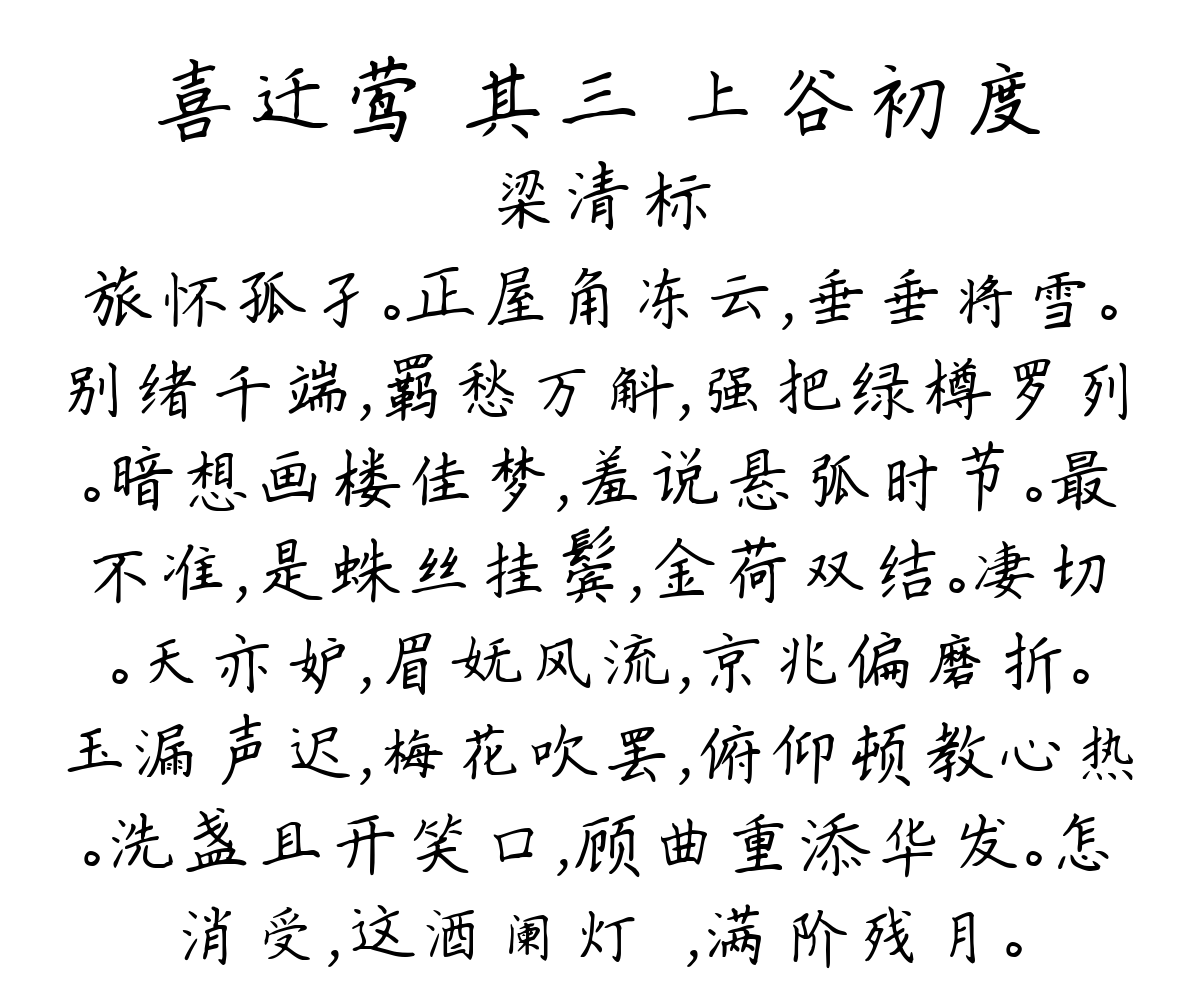 喜迁莺 其三 上谷初度
梁清标
旅怀孤孑。正屋角冻云,垂垂将雪。
别绪千端,羁愁万斛,强把绿樽罗列
。暗想画楼佳梦,羞说悬弧时节。最
不准,是蛛丝挂鬓,金荷双结。凄切
。天亦妒,眉妩风流,京兆偏磨折。
玉漏声迟,梅花吹罢,俯仰顿教心热
。洗盏且开笑口,顾曲重添华发。怎
消受,这酒阑灯 ,满阶残月。